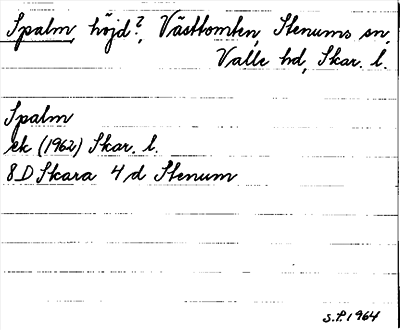 Spalm, höjd?, Västtomten, Stenums sn,
Valle hd, Skar. l.
Spalm
ek (1962) Skar. l.
8D Skara 4d Stenum
S.P. 1964